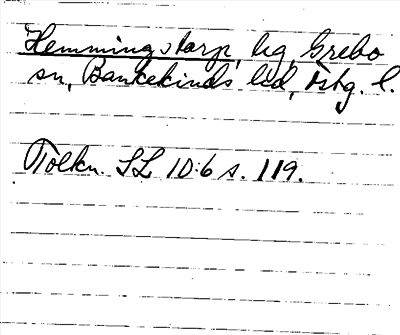 Hemmingstorp, hg, Grebo
sn, Bankekinds hd, Östg. l.
Tolkn. SL 10:6 s. 119.